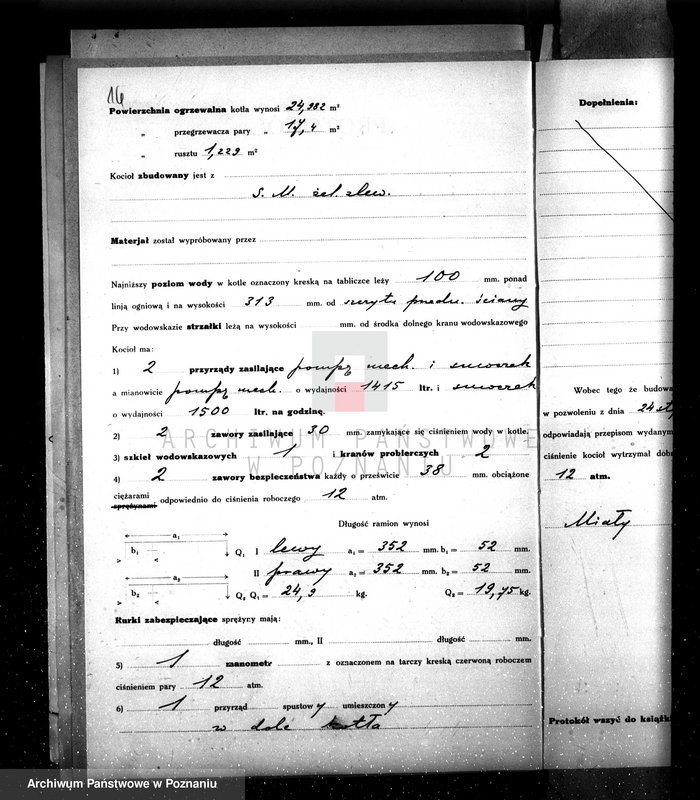 16
Powierzchnia ogrzewalna kotła wynosi 24,982 m²
„ przegrzewacza pary „ 17,4 m²
„ rusztu 1,229 m²
Kocioł zbudowany jest z
S. M. żel. zlew.
Materjał został wypróbowany przez
Najniższy poziom wody w kotle oznaczony kreską na tabliczce leży 100 mm. ponad
linją ogniową i na wysokości 313 mm. od szczytu przedn. ściany
Przy wodowskazie strzałki leżą na wysokości mm. od środka dolnego kranu wodowskazowego
Kocioł ma:
1) 2 przyrządy zasilające pompę mech. i smoczek
a mianowicie pompę mech. o wydajności 1415 ltr. i smoczek
o wydajności 1500 ltr. na godzinę.
2) 2 zawory zasilające 30 mm. zamykające się ciśnieniem wody w kotle.
3) szkieł wodowskazowych 1 i kranów probierczych 2
4) 2 zawory bezpieczeństwa każdy o prześwicie 38 mm. obciążone
ciężarami
sprężynami odpowiednio do ciśnienia roboczego 12 atm.
Długość ramion wynosi
a₁
b₁ Q₁ I lewy a₁ = 352 mm. b₁ = 52 mm.
a₂ II prawy a₂ = 352 mm. b₂ = 52 mm.
b₂ Q₂ Q₁ = 24,9 kg. Q₂ = 19,75 kg.
Rurki zabezpieczające sprężyny mają:
długość mm., II długość mm.
5) 1 manometr z oznaczonem na tarczy kreską czerwoną roboczem
ciśnieniem pary 12 atm.
6) 1 przyrząd spustowy umieszczony
w dole kotła
Dopełnienia:
Wobec tego że budowa
w pozwoleniu z dnia 24
odpowiadają przepisom wydanym
ciśnienie kocioł wytrzymał dob
12 atm.
Miały
Protokół wszyć do książk
ARCHIWUM PAŃSTWOWE
W POZNANIU
Archiwum Państwowe w Poznaniu